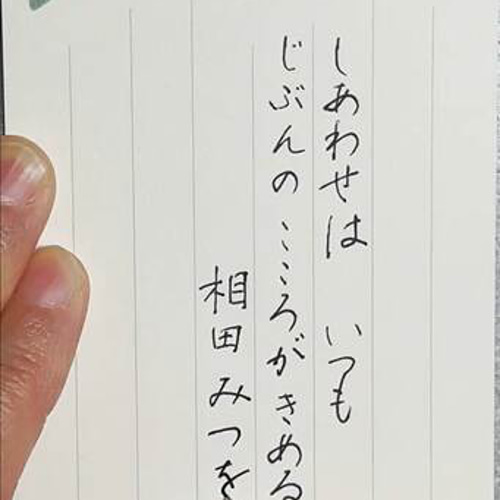 しあわせは　いつも
じぶんの　こころがきめる
相田みつを